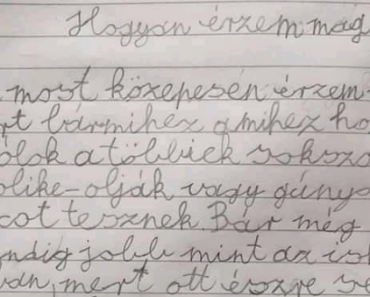 Hogyan érzem mag
most közepesen érzem
rt bármihez amihez ho
ólok a többiek soksz
olike-olják vagy gúnyo
cot tesznek. Bár még
ndig jobb mint az is
van, mert ott észre se